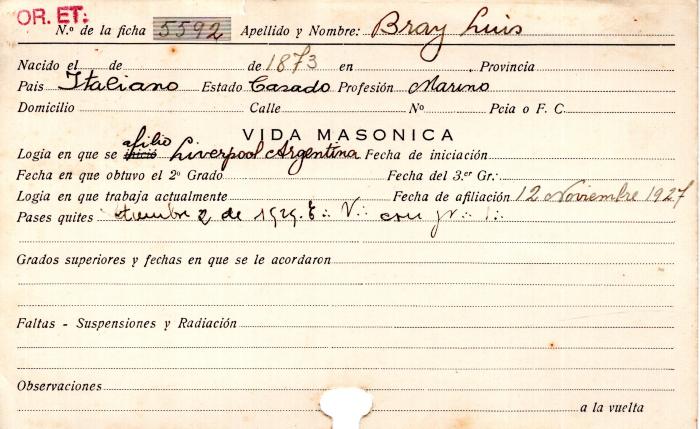 OR. ET:
N.º de la ficha 5592 Apellido y Nombre: Bray Luis
Nacido el de de 1873 en Provincia
Pais Italiano Estado Casado Profesión Marino
Domicilio Calle Nº Pcia o F. C.
VIDA MASONICA
afilio
Logia en que se inició Liverpool Argentina Fecha de iniciación:
Fecha en que obtuvo el 2º Grado Fecha del 3.er Gr:
Logia en que trabaja actualmente Fecha de afiliación 12 Noviembre 1927
Pases quites 2 de 1929. E∴ V∴ con
Grados superiores y fechas en que se le acordaron
Faltas - Suspensiones y Radiación
Observaciones
a la vuelta